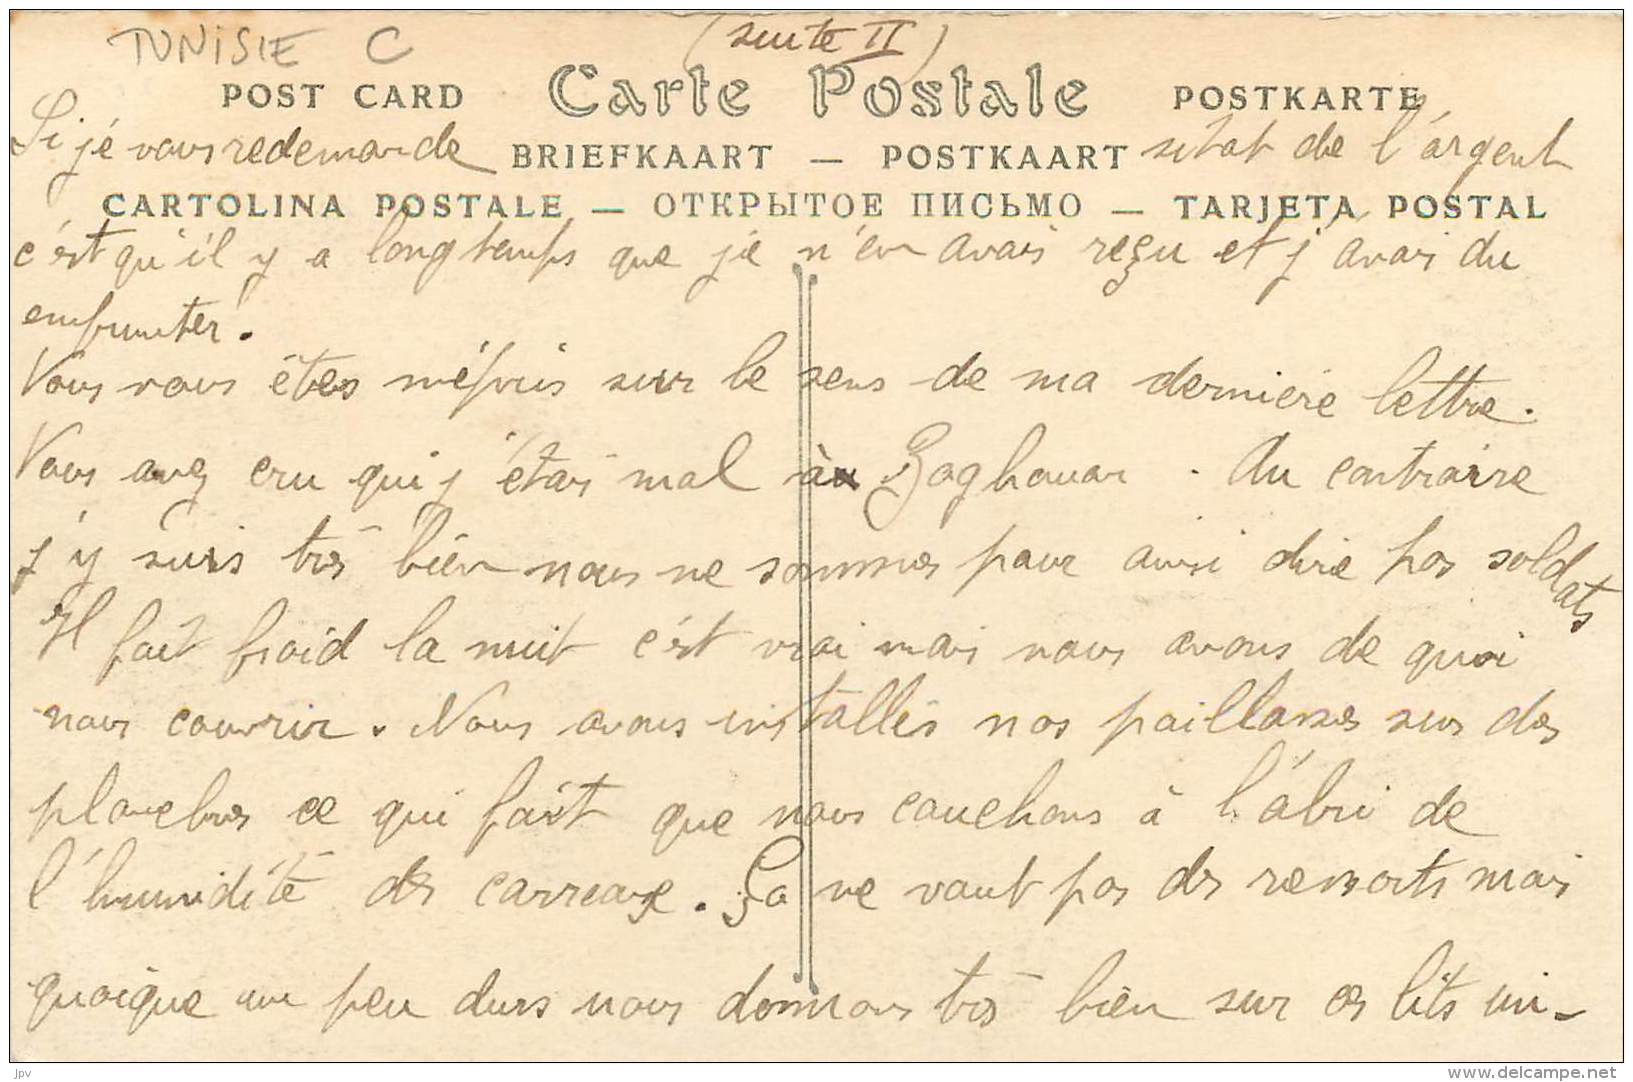 TUNISIE C (suite II)
POST CARD Carte Postale POSTKARTE
Si je vous redemande BRIEFKAART — POSTKAART sitot de l'argent
CARTOLINA POSTALE — ОТКРЫТОЕ ПИСЬМО — TARJETA POSTAL
c'est qu'il y a longtemps que je n'en avais reçu et j'avais du
emprunter.
Vous vous êtes mépris sur le sens de ma dernière lettre.
Vous avez cru qui j'étais mal à Zaghouan. Au contraire
j'y suis très bien nous ne sommes pour ainsi dire pas soldats
Il fait froid la nuit c'est vrai mais nous avons de quoi
nous couvrir. Nous avons installés nos paillasses sur des
planches ce qui fait que nous couchons à l'abri de
l'humidité des carreaux. Ça ne vaut pas des ressorts mais
quoique un peu durs nous dormons très bien sur ces lits im-
jpv
www.delcampe.net